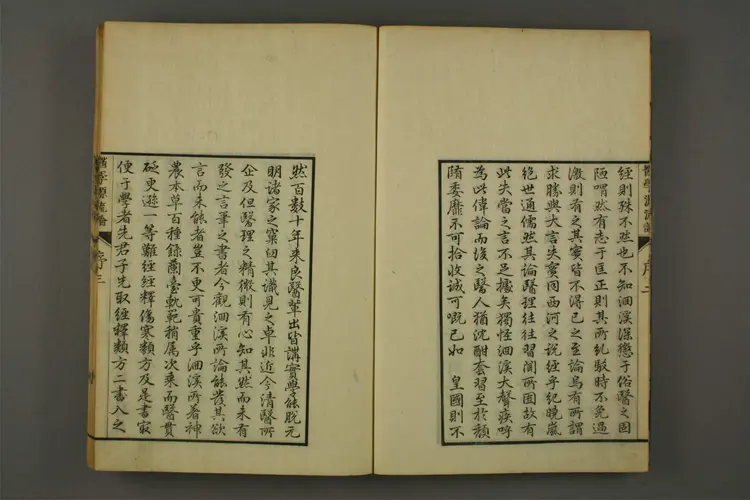 經則殊不然也不知洄溪深懲于俗醫之固
陋喟然有志于匡正則其所糾駁時不免過
激則有之其實皆不得已之至論烏有所謂
求勝與大言失實図西河之說經乎紀曉嵐
絶世通儒然其論醫理往往習聞所囿故有
此失當之言不足據矣獨怪洄溪大聲疾呼
為此偉論而後之醫人猶沈酣套習至於頹
隋委靡不可拾收誠可嘅已如 皇國則不
序二
然百數十年來良醫輩出皆講實學能脫元
明諸家之窠臼其識見之卓非近今清醫所
企及但醫理之精微則有心知其然而未有
發之言筆之書者今觀洄溪所論能發其欲
言而未能者豈不更可貴重乎洄溪所著神
農本草百種録蘭臺軌範稍屬次乘而醫貫
砭更遜一等難經經釋傷寒類方及是書最
便于學者先君子先取經釋類方二書入之
醫學源流論
序三